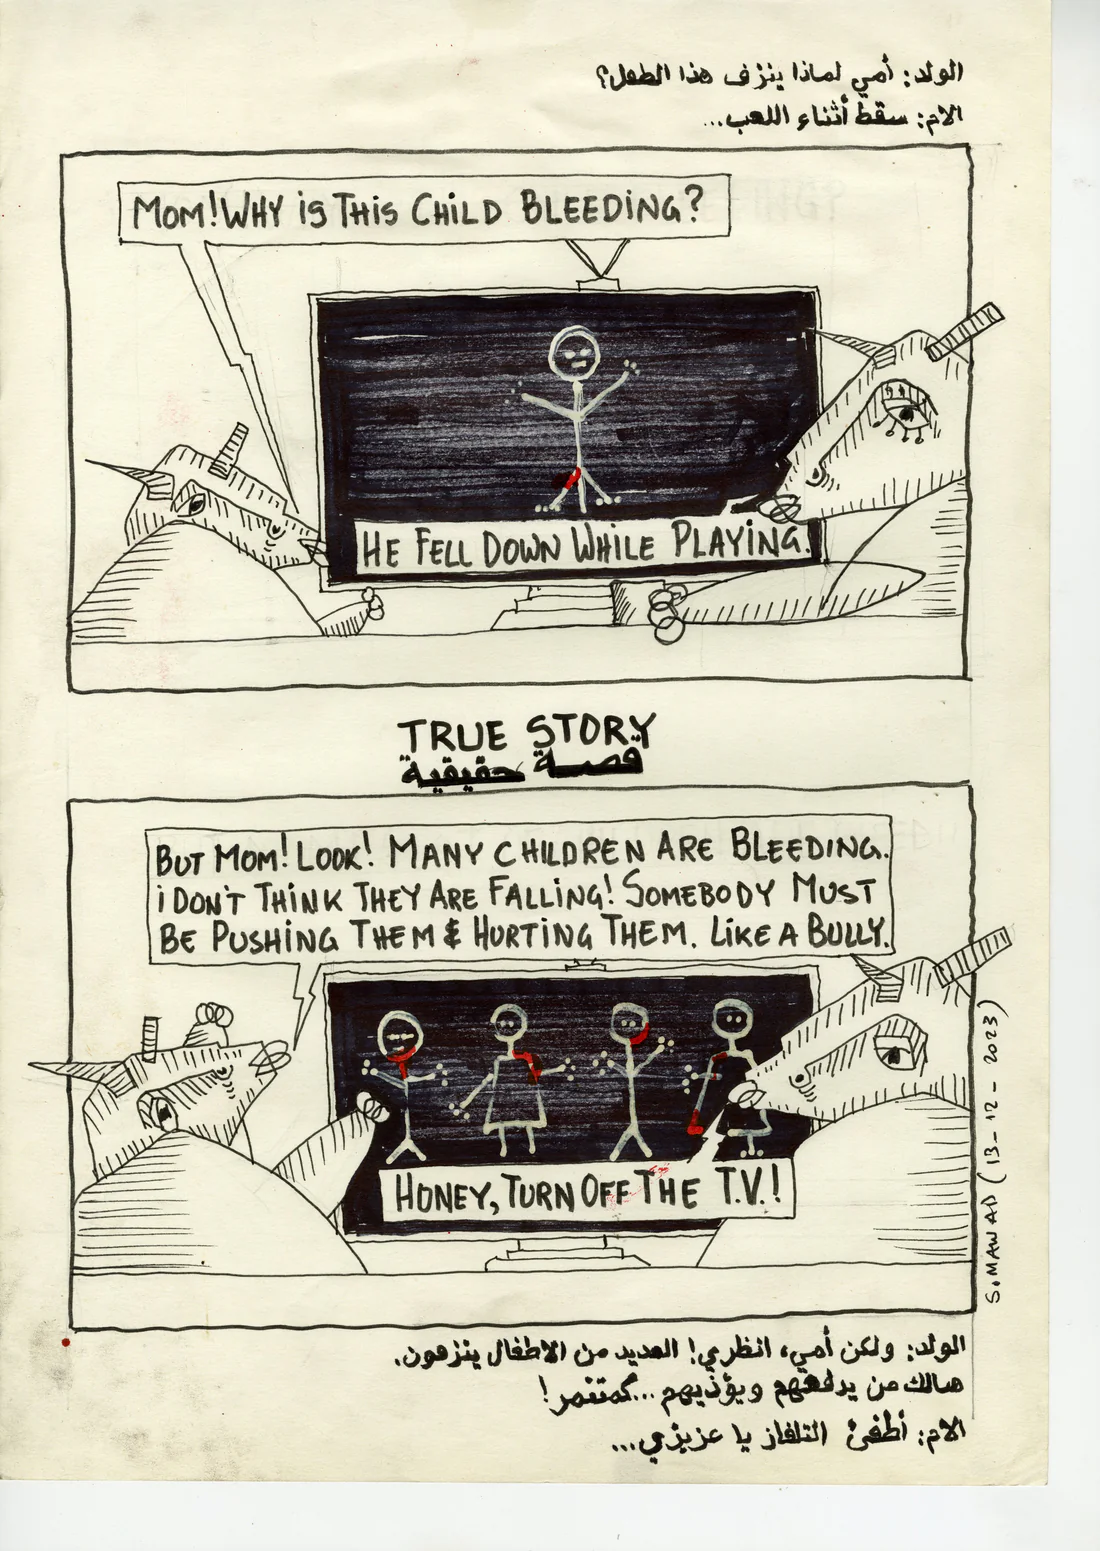 الولد: أمي لماذا ينزف هذا الطفل؟
الام: سقط أثناء اللعب...
MOM! WHY iS THiS CHiLD BLEEDiNG?
HE FELL DOWN WHiLE PLAYiNG.
TRUE STORY
قصة حقيقية
BUT MOM! LOOK! MANY CHiLDREN ARE BLEEDiNG.
i DON'T THiNK THEY ARE FALLiNG! SOMEBODY MUST
BE PUSHiNG THEM & HURTiNG THEM. LiKE A BULLY.
HONEY, TURN OFF THE T.V.!
S.MAWAD (13-12-2023)
الولد: ولكن أمي، انظري! العديد من الاطفال ينزفون.
هنالك من يدفعهم ويؤذيهم... كمتنمر!
الام: أطفئ التلفاز يا عزيزي...